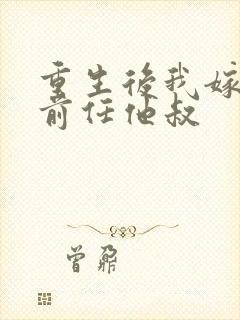 重生後我嫁
前任他叔
曾鼐